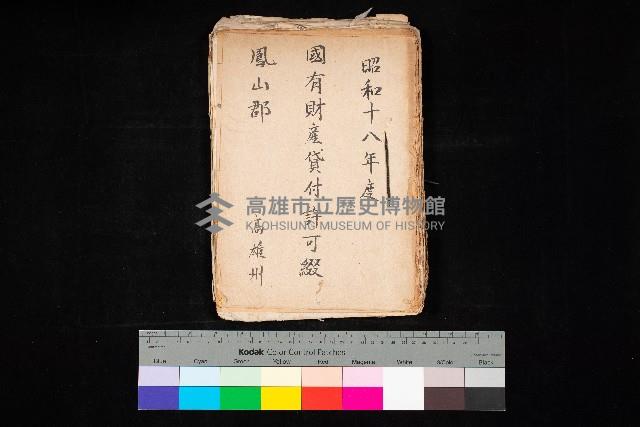 昭和十八年度
國有財産貸付許可綴
鳳山郡
高雄州
高雄市立歷史博物館
KAOHSIUNG MUSEUM OF HISTORY
Kodak Color Control Patches
Blue Cyan Green Yellow Red Magenta White 3/Color Black